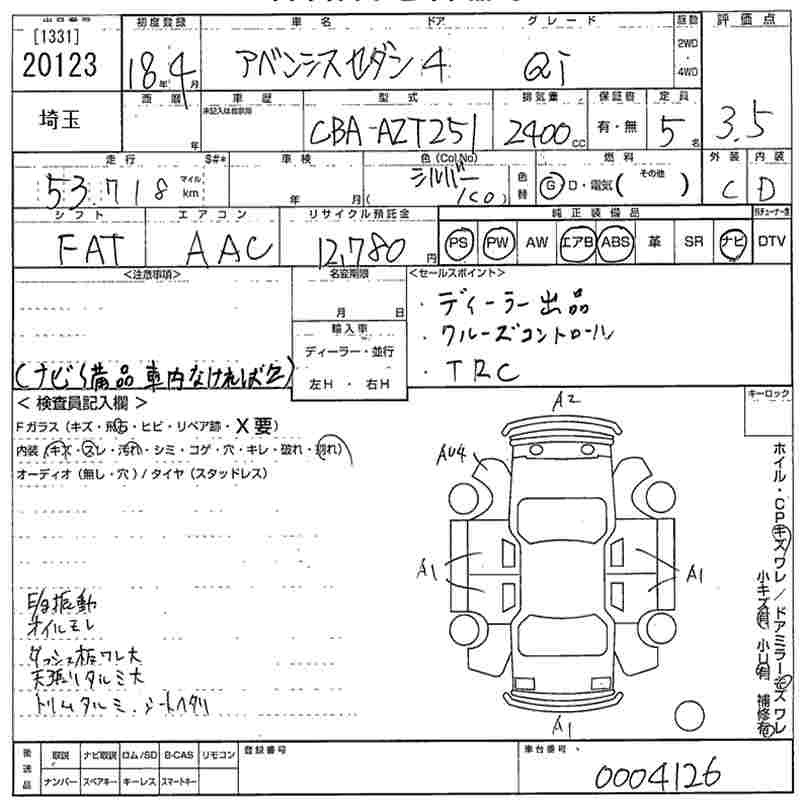 出品番号 初度登録 車名 ドア グレード 駆動 評価点
[1331]
20123
18年4月 アベンシスセダン 4 Qi 2WD・4WD 3.5
埼玉 西暦 年 車歴 未記入は自家用 型式 排気量 保証書 定員
CBA-AZT251 2400cc 有・無 5名
走行 S#* 車検 色(Col,No) 色替 燃料 外装 内装
53,718 マイル km 年 月 シルバー (1C0) G D・電気( その他 ) C D
シフト エアコン リサイクル預託金 純正装備品
FAT AAC 12,780円 PS PW AW エアB ABS 革 SR ナビ DTV
<注意事項> 名変期限 <セールスポイント>
月 日 ・ディーラー出品
輸入車 ・クルーズコントロール
ディーラー・並行 ・TRC
(ナビ、備品 車内なければ欠) 左H・右H
<検査員記入欄> キーロック
Fガラス(キズ・飛石・ヒビ・リペア跡・X要)
内装(キズ・スレ・汚れ・シミ・コゲ・穴・キレ・破れ・割れ)
オーディオ(無し・穴)/タイヤ(スタッドレス)
A2
AU4
A1
A1
A1
ホイル・CPキズワレ/ドアミラーキズワレ
小キズ有、小U有 補修有
E/g振動
オイルモレ
ダッシュ板ワレ大
天張リタルミ大
トリムタルミ.シートヘタリ
後送品 取説 ナビ取説 ロム/SD B-CAS リモコン 登録番号 車台番号
ナンバー スペアキー キーレス スマートキー 0004126